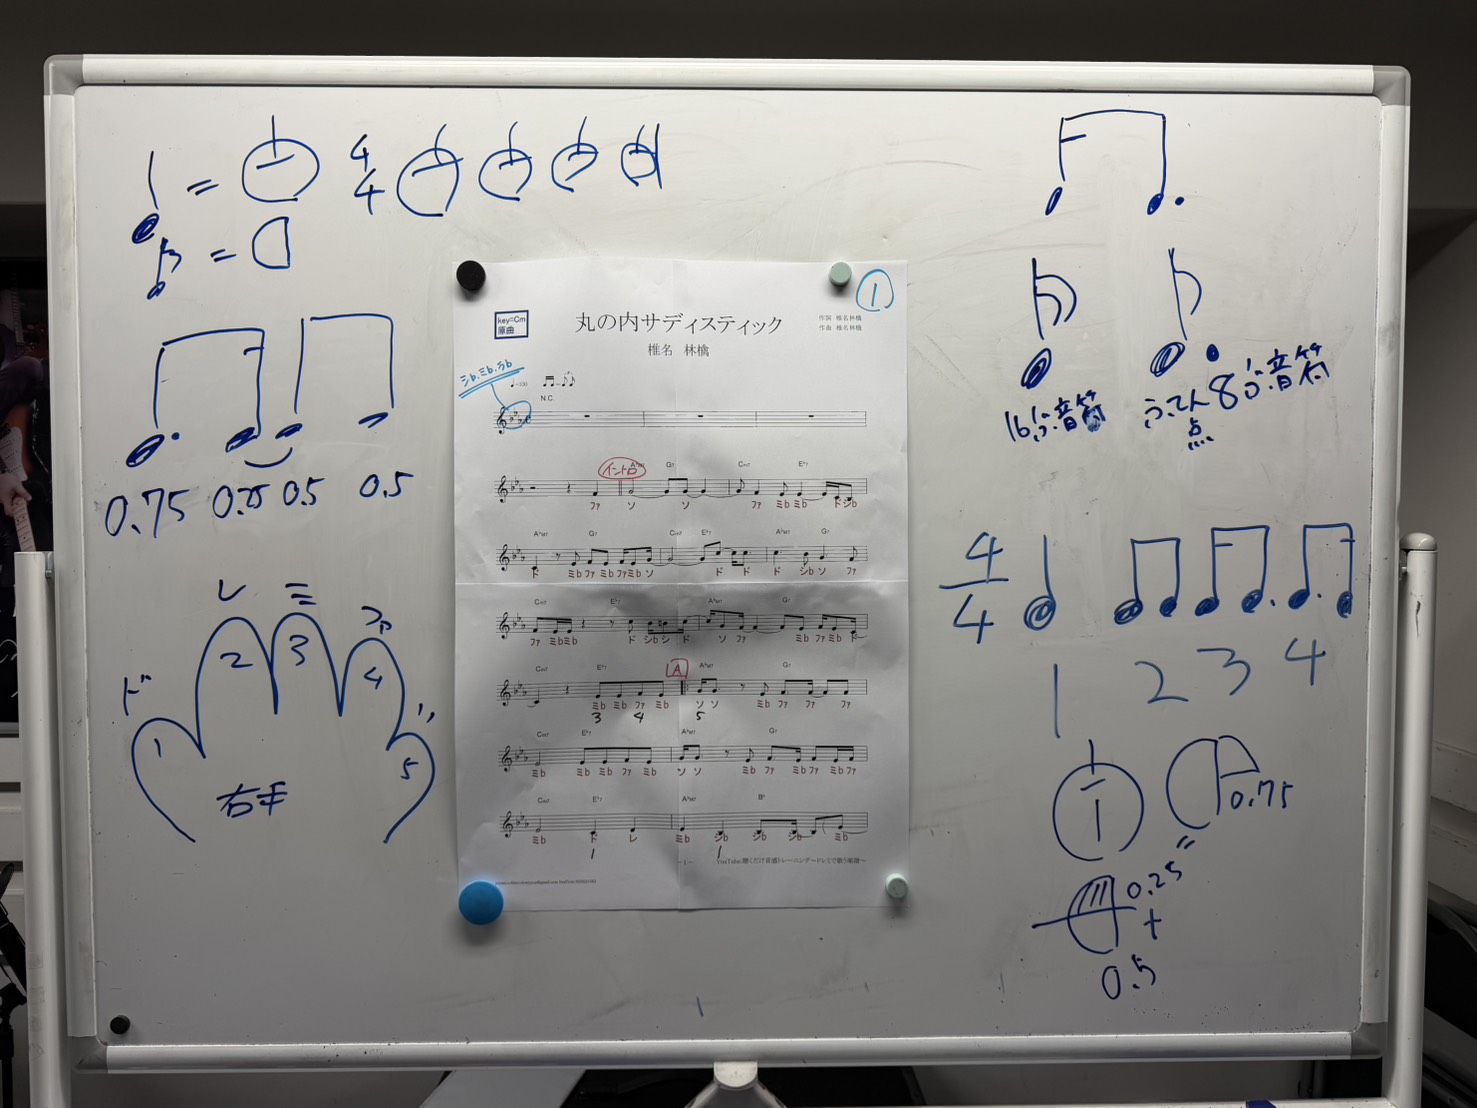 =
4
4
=
0.75 0.25 0.5 0.5
ド レ ミ ファ
1 2 3 4 5
右手
①
key=Cm
原曲
丸の内サディスティック
作詞 椎名林檎
作曲 椎名林檎
椎名 林檎
シb.ミb.ラb
N.C.
イントロ
A♭M7 G7 Cm7 E♭7
ファ ソ ソ ファ ミb ミb ド シb
A♭M7 G7 Cm7 E♭7 A♭M7 G7
ド ミb ファ ミb ファ ミb ソ ド ド ド シb ソ ファ
Cm7 E♭7 A♭M7 G7
ファ ミb ミb ド シb シ ド ソ ファ ミb ファ ミb ド
A
Cm7 E♭7 A♭M7 G7
ミb ミb ファ ミb ソ ソ ミb ファ ファ ファ
3 4 5
Cm7 E♭7 A♭M7 G7
ミb ミb ミb ファ ミb ソ ソ ミb ファ ミb ファ ミb ファ
Cm7 E♭7 A♭M7 B♭
ミb ド レ ミb シb シb シb ミb
1 1
- 1 -
YouTube/聴くだけ音感トレーニング〜ドレミで歌う楽譜〜
16ぶ音符
ふてん8ぶ音符
点
4
4
1 2 3 4
1 0.75
=
0.25
+
0.5